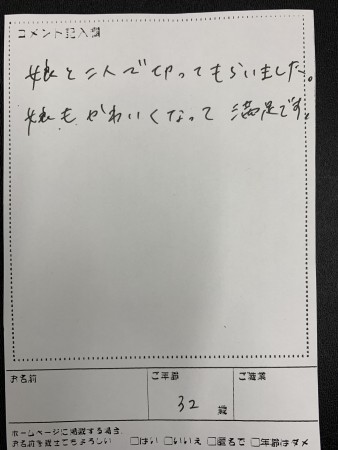 コメント記入欄
娘と二人で切ってもらいました。
娘もかわいくなって 満足です。
お名前
ご年齢
ご職業
32 歳
ホームページに掲載する場合、
お名前を載せてもよろしい □はい □いいえ □匿名で □年齢はダメ